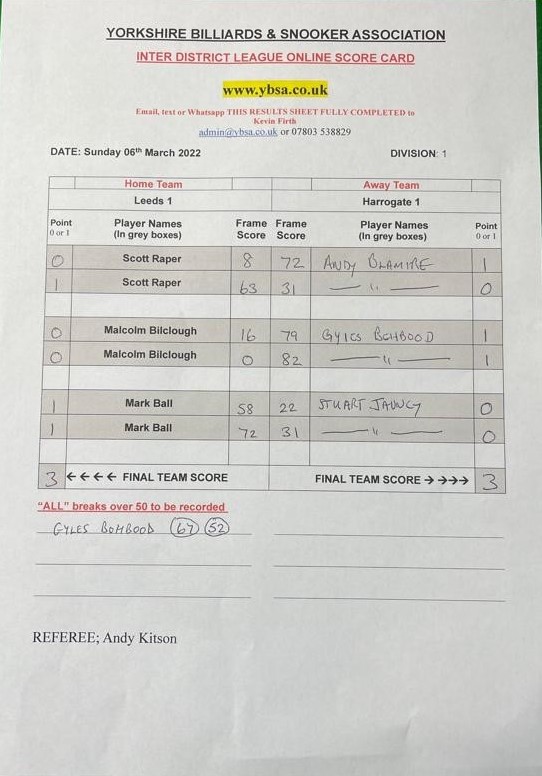 YORKSHIRE BILLIARDS & SNOOKER ASSOCIATION
INTER DISTRICT LEAGUE ONLINE SCORE CARD
www.ybsa.co.uk
Email, text or Whatsapp THIS RESULTS SHEET FULLY COMPLETED to
Kevin Firth
admin@ybsa.co.uk or 07803 538829
DATE: Sunday 06th March 2022 DIVISION: 1
Home Team Away Team
Leeds 1 Harrogate 1
Point 0 or 1 Player Names (In grey boxes) Frame Score Frame Score Player Names (In grey boxes) Point 0 or 1
0 Scott Raper 8 72 ANDY BLAMIRE 1
1 Scott Raper 63 31 — " — 0
0 Malcolm Bilclough 16 79 GYLES BOHBOOD 1
0 Malcolm Bilclough 0 82 — " — 1
1 Mark Ball 58 22 STUART JAUNCY 0
1 Mark Ball 72 31 — " — 0
3 ←←←← FINAL TEAM SCORE FINAL TEAM SCORE →→→→ 3
"ALL" breaks over 50 to be recorded
GYLES BOHBOOD 67 52
REFEREE; Andy Kitson